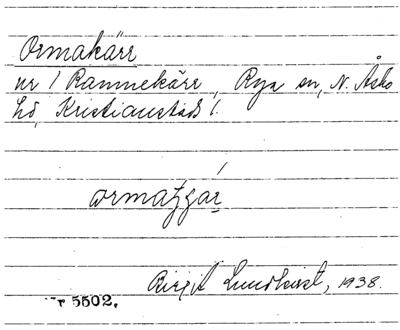 Ormakärr
nr 1 Rammekärr, Rya sn, N. Åsbo
hd, Kristianstads l.
Birgit Lundkvist, 1938.
nr 5502.